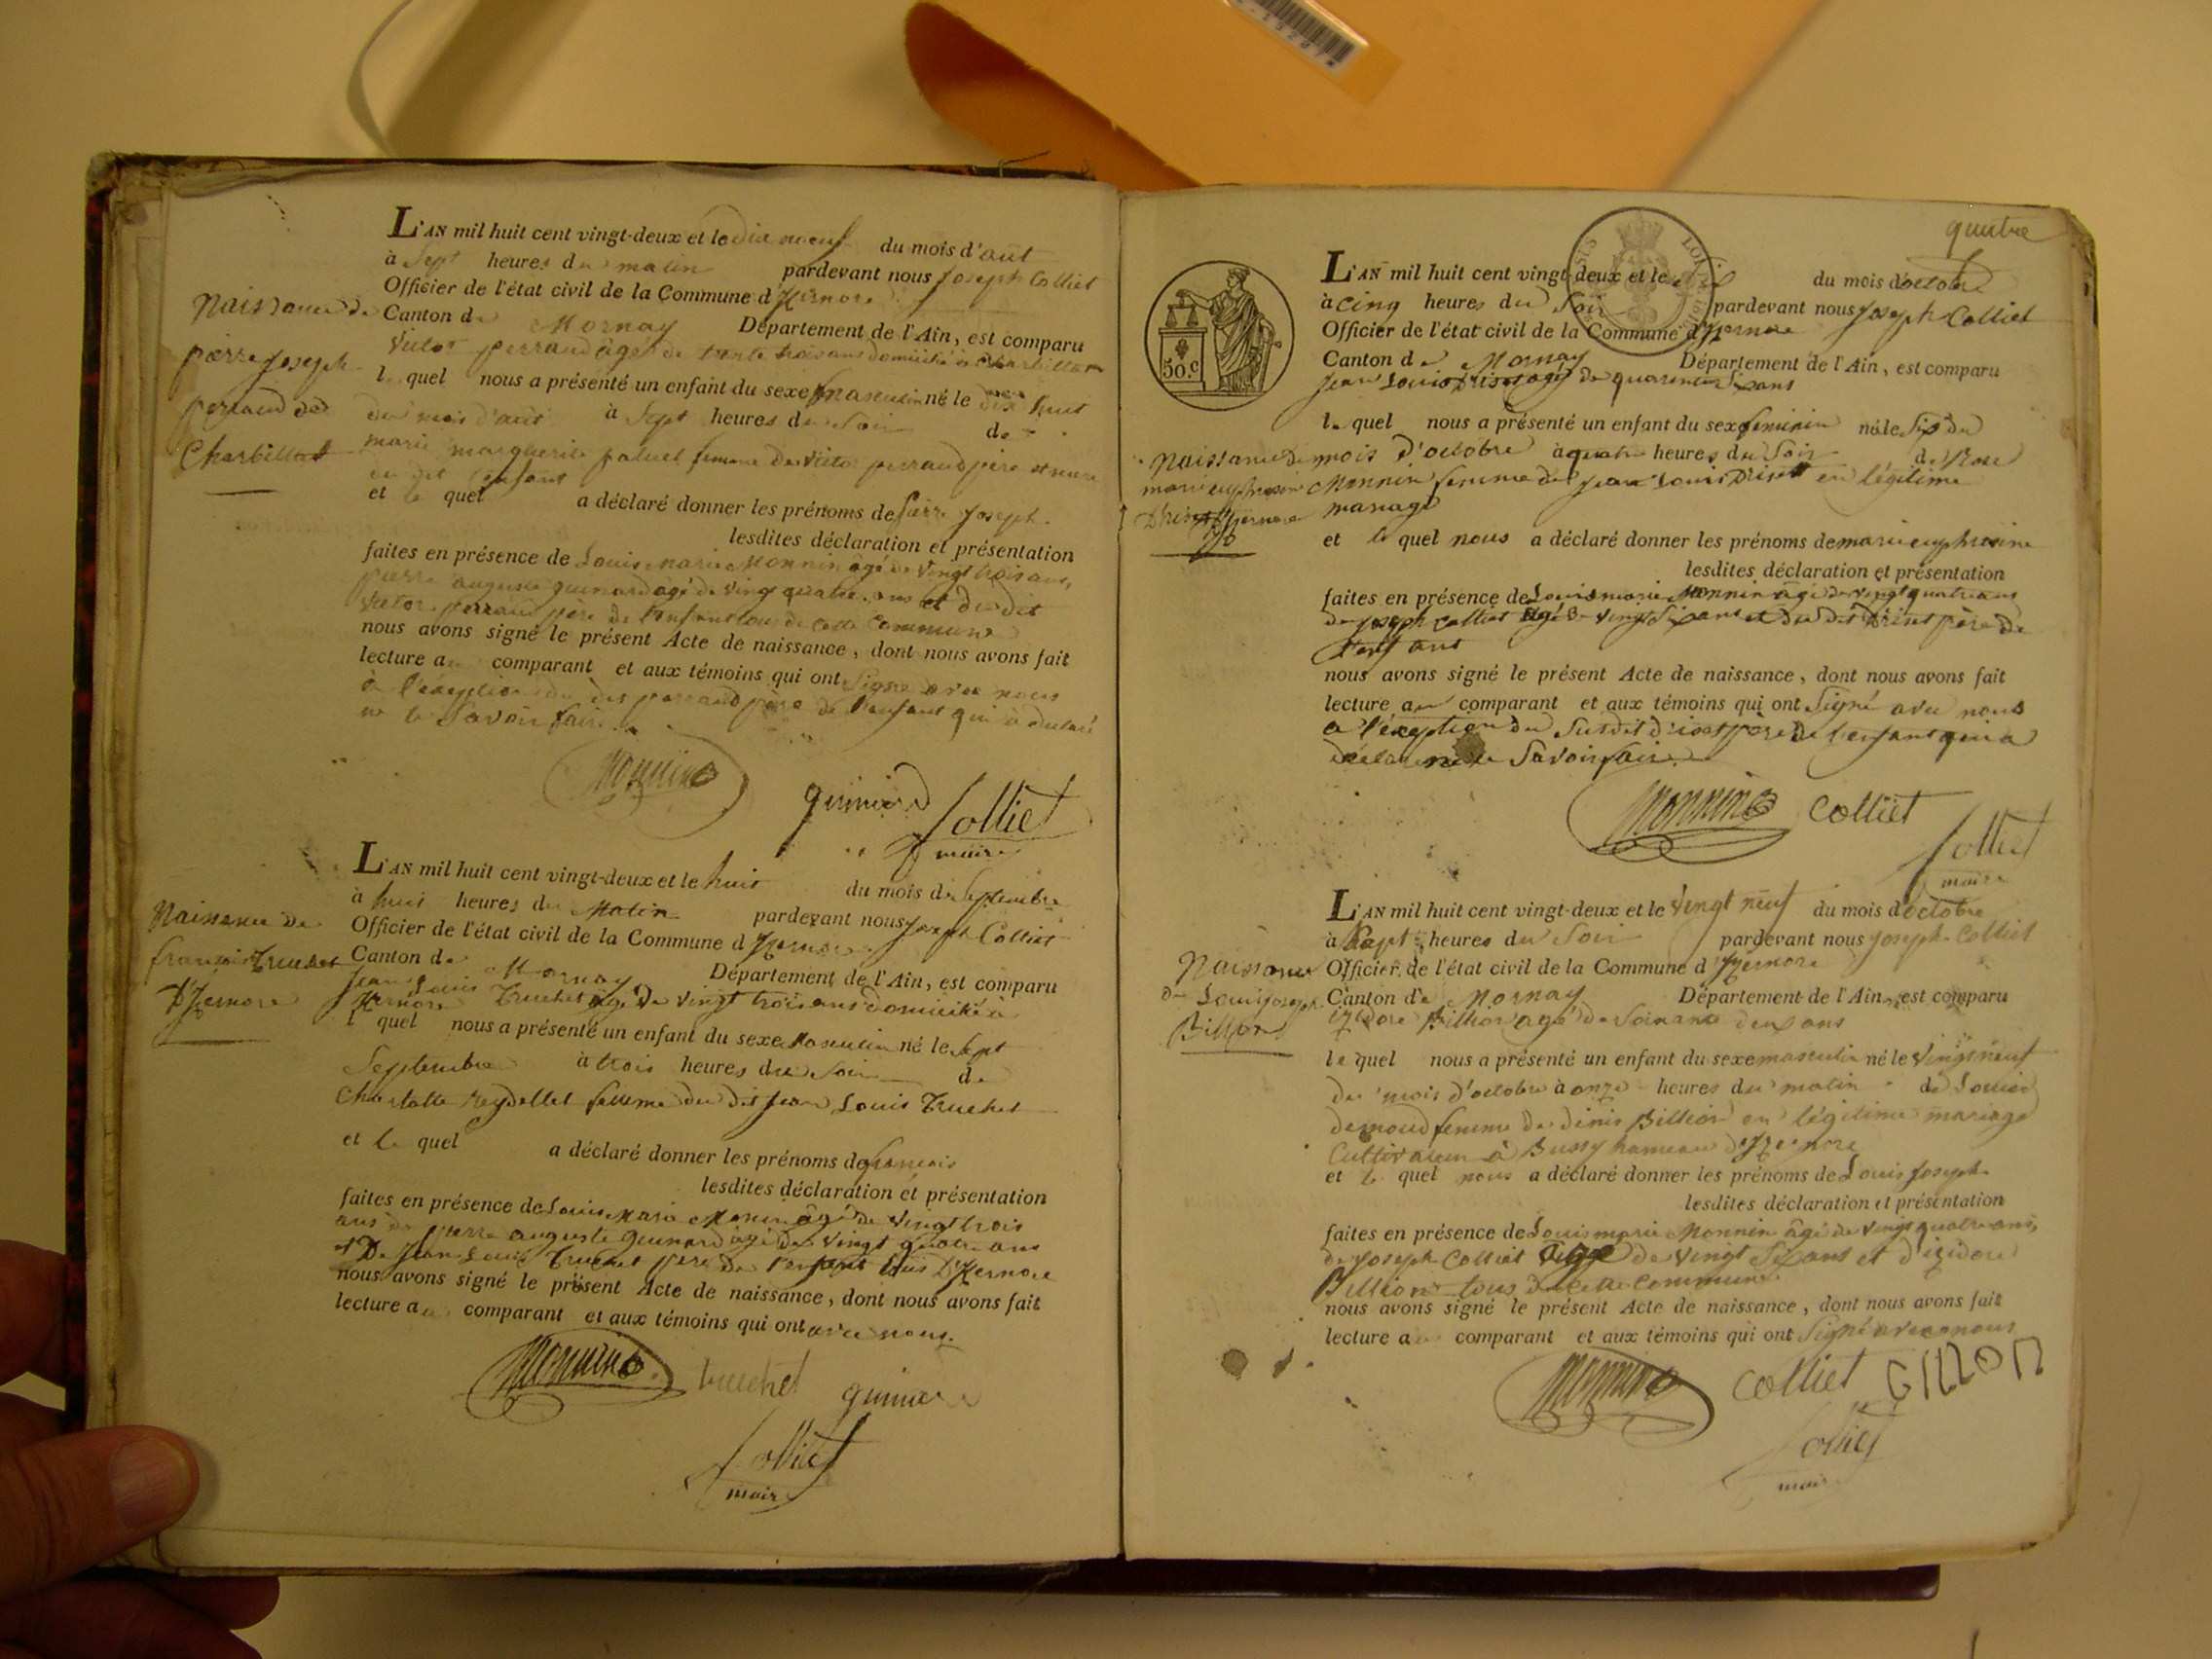 Naissance de
pierre Joseph
perraud de
Charbillat
L'AN mil huit cent vingt-deux et le dix neuf du mois d'aut
à Sept heures du matin pardevant nous Joseph Colliet
Officier de l'état civil de la Commune d'Izernore
Canton de Mornay Département de l'Ain, est comparu
Victor perraud âgé de trente trois ans domicilié à Charbillat
le quel nous a présenté un enfant du sexe masculin né le dix huit
du mois d'aut à Sept heures du Soir de
marie marguerite paluel femme de Victor perraud père et mère
du dit enfant
et le quel a déclaré donner les prénoms de pierre Joseph.
lesdites déclaration et présentation
faites en présence de Louis marie Monnin âgé de vingt trois ans,
pierre auguste guinard âgé de vingt quatre ans et du dit
Victor perraud père de l'enfant tous de cette Commune
nous avons signé le présent Acte de naissance, dont nous avons fait
lecture au comparant et aux témoins qui ont Signé avec nous
à l'éxeption du dit perraud père de l'enfant qui a déclaré
ne le Savoir faire.
Monnin
guinard
Colliet
maire
Naissance de
francois Truchet
D'Izernore
L'AN mil huit cent vingt-deux et le huit du mois de Septembre
à huit heures du Matin pardevant nous Joseph Colliet
Officier de l'état civil de la Commune d'Izernore
Canton de Mornay Département de l'Ain, est comparu
Jean Louis Truchet âgé de vingt trois ans domicilié à
Izernore
l quel nous a présenté un enfant du sexe Masculin né le Sept
Septembre à trois heures du Soir de
Charlotte Reydellet femme du dit Jean Louis Truchet
et le quel a déclaré donner les prénoms de francois
lesdites déclaration et présentation
faites en présence de Louis Marie Monin âgé de vingt trois
ans de pierre auguste guinard âgé de vingt quatre ans
et De Jean Louis Truchet père de l'enfant tous D'Izernore
nous avons signé le présent Acte de naissance, dont nous avons fait
lecture au comparant et aux témoins qui ont avec nous.
Monnin
truchet
guinard
Colliet
maire
quatre
50.c
L'AN mil huit cent vingt-deux et le du mois d'octobre
à cinq heures du Soir pardevant nous Joseph Colliet
Officier de l'état civil de la Commune d'Izernore
Canton de Mornay Département de l'Ain, est comparu
Jean Louis Driset âgé de quarente Six ans
le quel nous a présenté un enfant du sexe feminin né le Six du
Naissance de
marie euphrosine
Driset d'Izernore
mois d'octobre à quatre heures du Soir de Rose
Monnin femme de Jean Louis Driset en légitime
mariage
et le quel nous a déclaré donner les prénoms de marie euphrosine
lesdites déclaration et présentation
faites en présence de Louis marie Monnin âgé de vingt quatre ans
de Joseph Colliet âgé de vingt Six ans et du dit Driset père de
l'enfant
nous avons signé le présent Acte de naissance, dont nous avons fait
lecture au comparant et aux témoins qui ont Signé avec nous
à l'éxeption du Susdit driset père de l'enfant qui a
déclaré ne le Savoir faire.
Monnin
Colliet
Colliet
maire
Naissance
de Louis Joseph
Billion
L'AN mil huit cent vingt-deux et le Vingt neuf du mois d'octobre
à Sept heures du Soir pardevant nous Joseph Colliet
Officier de l'état civil de la Commune d'Izernore
Canton de Mornay Département de l'Ain, est comparu
izidore Billion âgé de Soixante deux ans
le quel nous a présenté un enfant du sexe masculin né le Vingt neuf
du mois d'octobre à onze heures du matin de Louise
demoud femme de dinis Billion en légitime mariage
Cultivateur à Bussy hameau d'Izernore
et le quel nous a déclaré donner les prénoms de Louis Joseph
lesdites déclaration et présentation
faites en présence de Louis marie Monnin âgé de vingt quatre ans,
de Joseph Colliet âgé de vingt Six ans et d'izidore
Billion tous de cette Commune.
nous avons signé le présent Acte de naissance, dont nous avons fait
lecture au comparant et aux témoins qui ont Signé avec nous
Monnin
Colliet
Colliet
maire